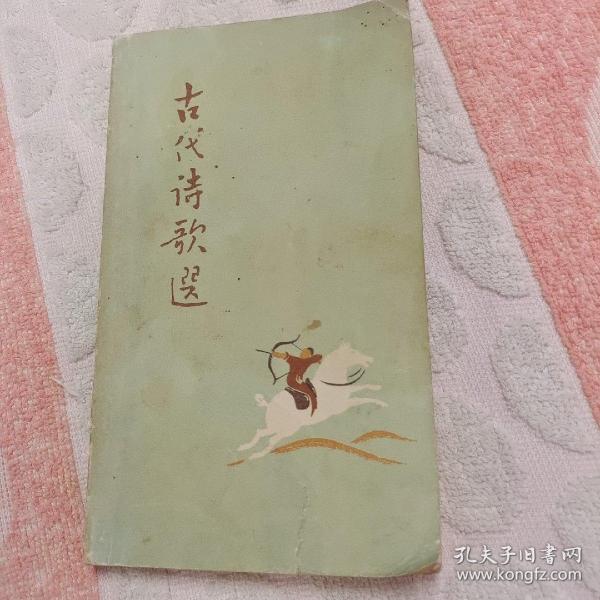 古代诗歌選
孔夫子旧書网
www.kongfz.com